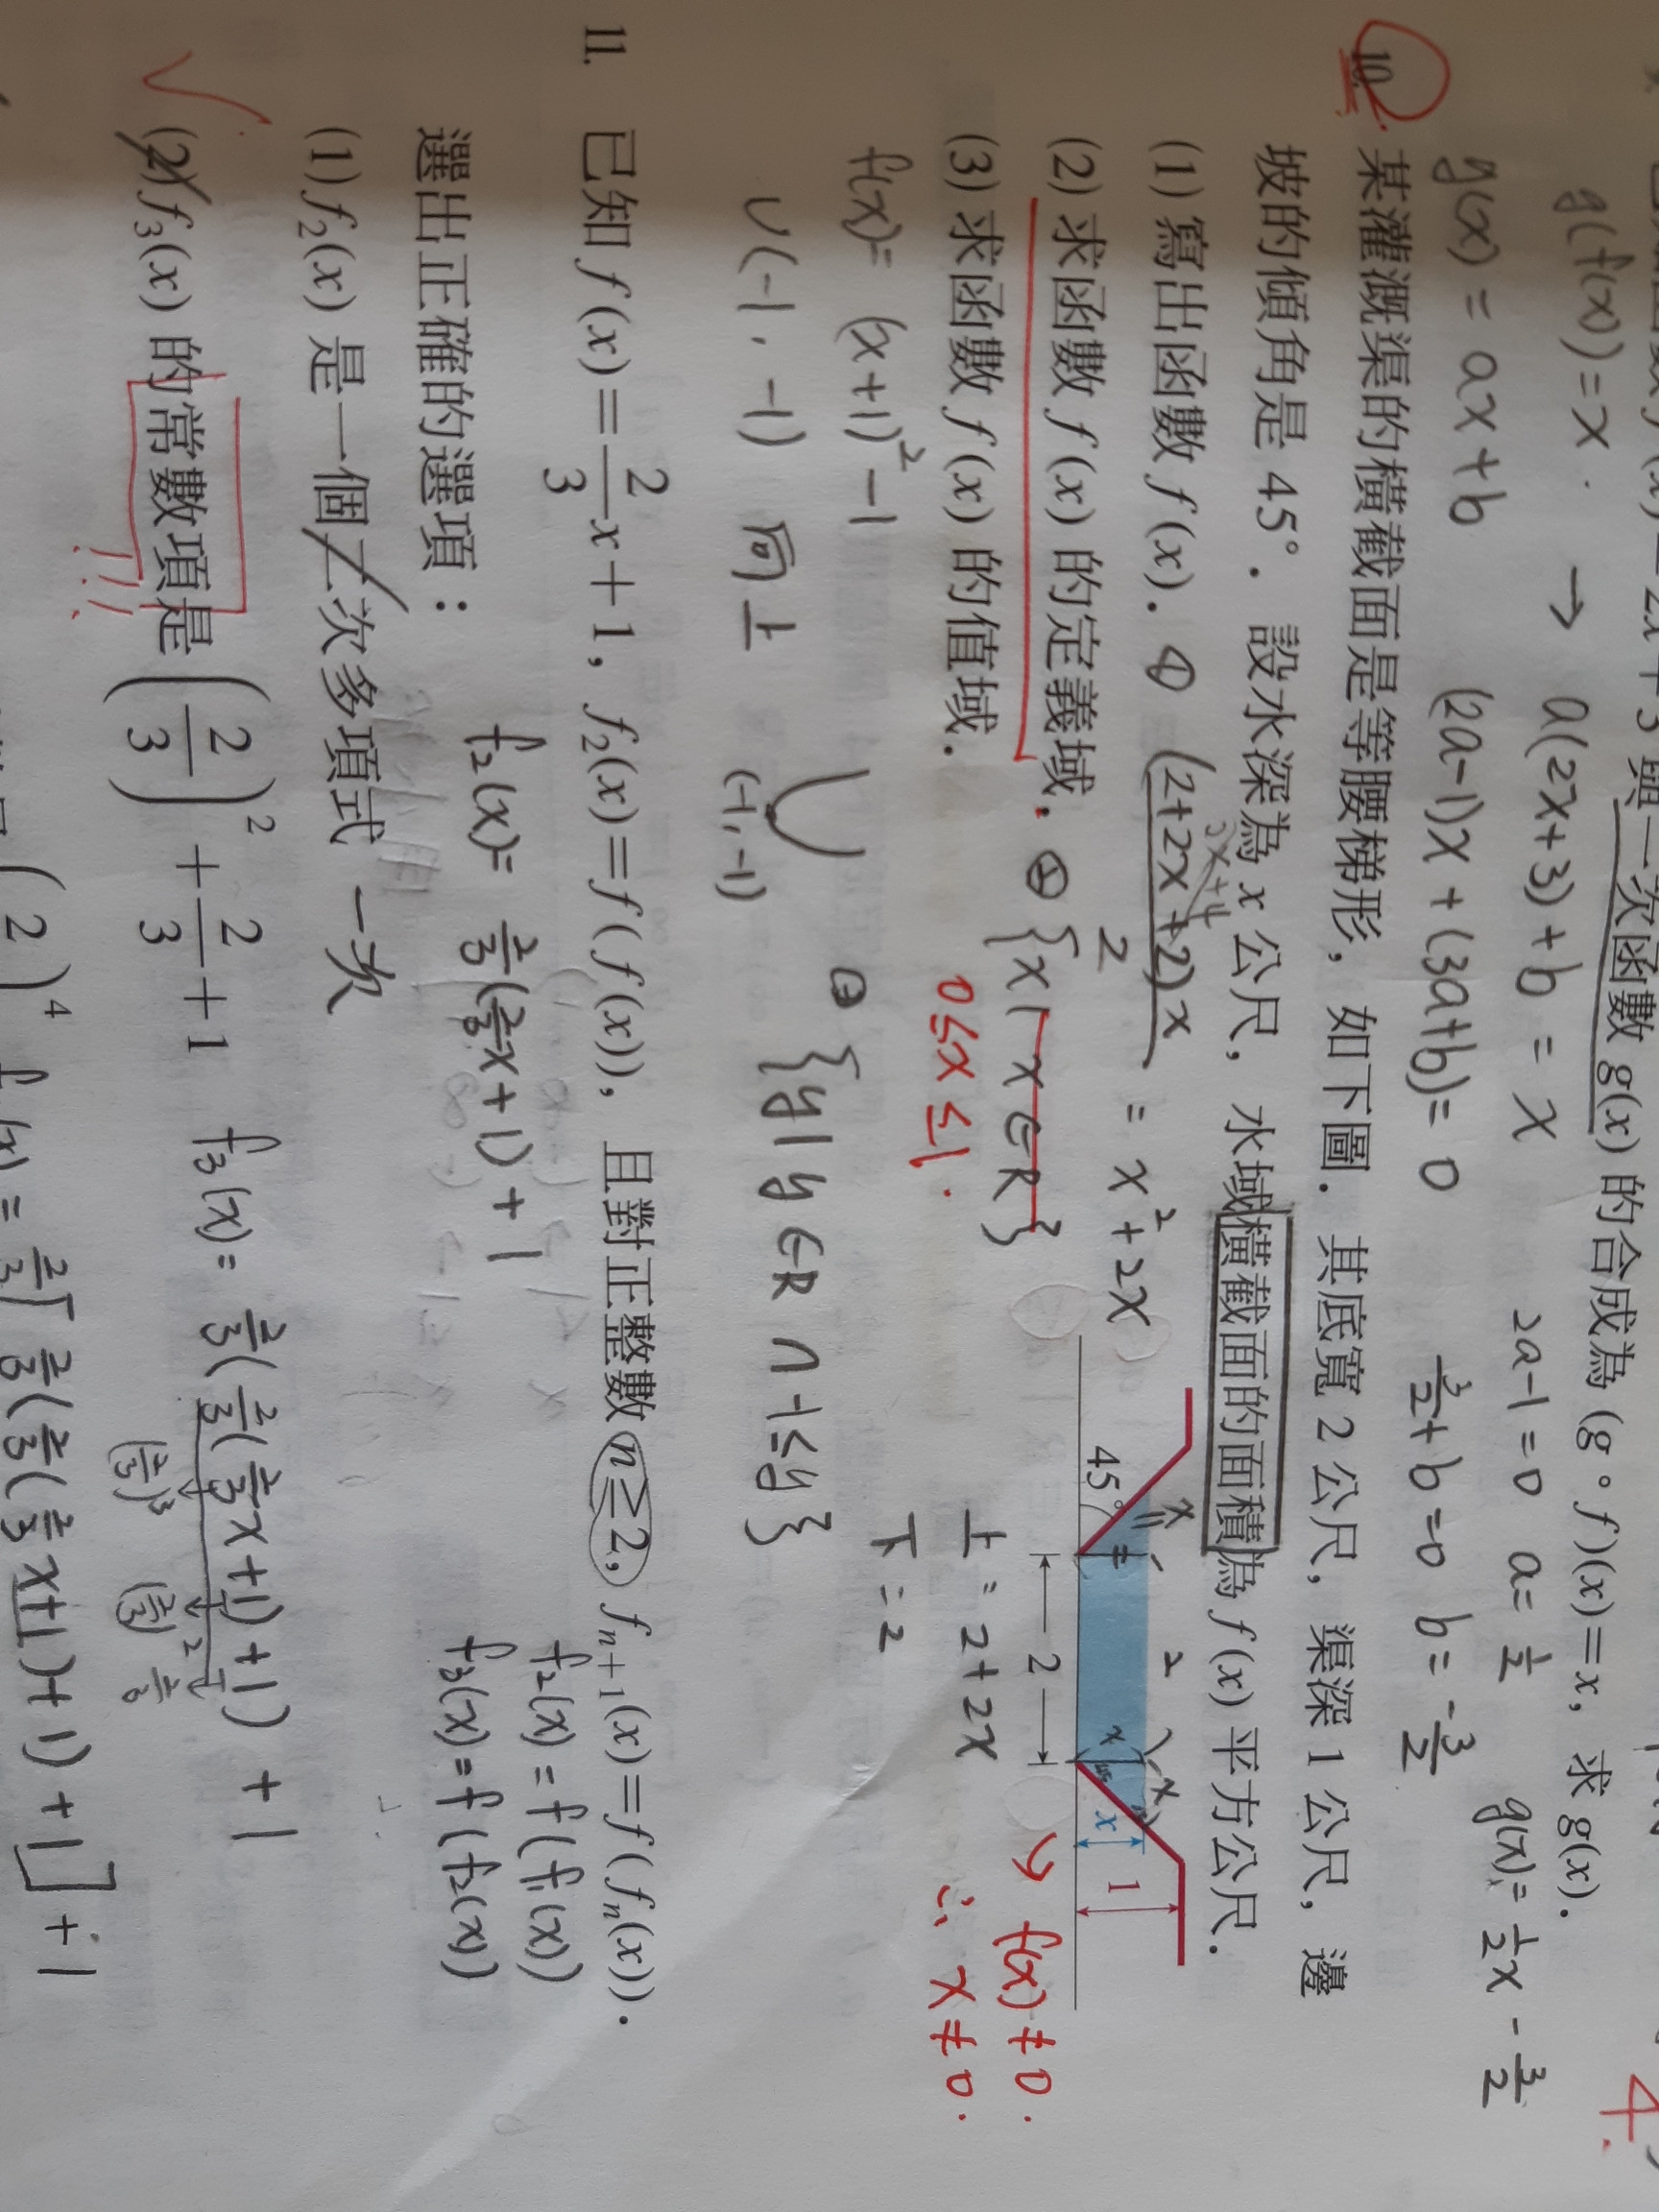 與一次函數 g(x) 的合成為 (g∘f)(x)=x, 求 g(x).
g(f(x))=x. → a(2x+3)+b = x 2a-1=0 a=1/2
g(x)=ax+b (2a-1)x+(3a+b)=0 3/2+b=0 b=-3/2 g(x)=1/2x-3/2
10. 某灌溉渠的橫截面是等腰梯形, 如下圖. 其底寬 2 公尺, 渠深 1 公尺, 邊
坡的傾角是 45°. 設水深為 x 公尺, 水域橫截面的面積為 f(x) 平方公尺.
(1) 寫出函數 f(x). ① (2+2x+2)x/2 = x²+2x
2x+4
(2) 求函數 f(x) 的定義域. ② {x|x∈R}
0≤x≤1.
(3) 求函數 f(x) 的值域.
45°
2
x
1
x
2
x
x
上=2+2x
下=2
f(x)≠0.
∴ x≠0.
f(x)=(x+1)²-1
V(-1,-1) 向上 (-1,-1)
③ {y|y∈R∩-1≤y}
11. 已知 f(x)=2/3x+1, f₂(x)=f(f(x)), 且對正整數 n≥2, fₙ₊₁(x)=f(fₙ(x)).
選出正確的選項:
f₂(x)=2/3(2/3x+1)+1
f₂(x)=f(f₁(x))
f₃(x)=f(f₂(x))
(1) f₂(x) 是一個二次多項式 一次
(2) f₃(x) 的常數項是 (2/3)²+2/3+1 f₃(x)=2/3(2/3(2/3x+1)+1)+1
!!!
(2/3)³ (2/3)² 2/3
(2/3)⁴ (x)=2/3[2/3(2/3(2/3x+1)+1)+1]+1